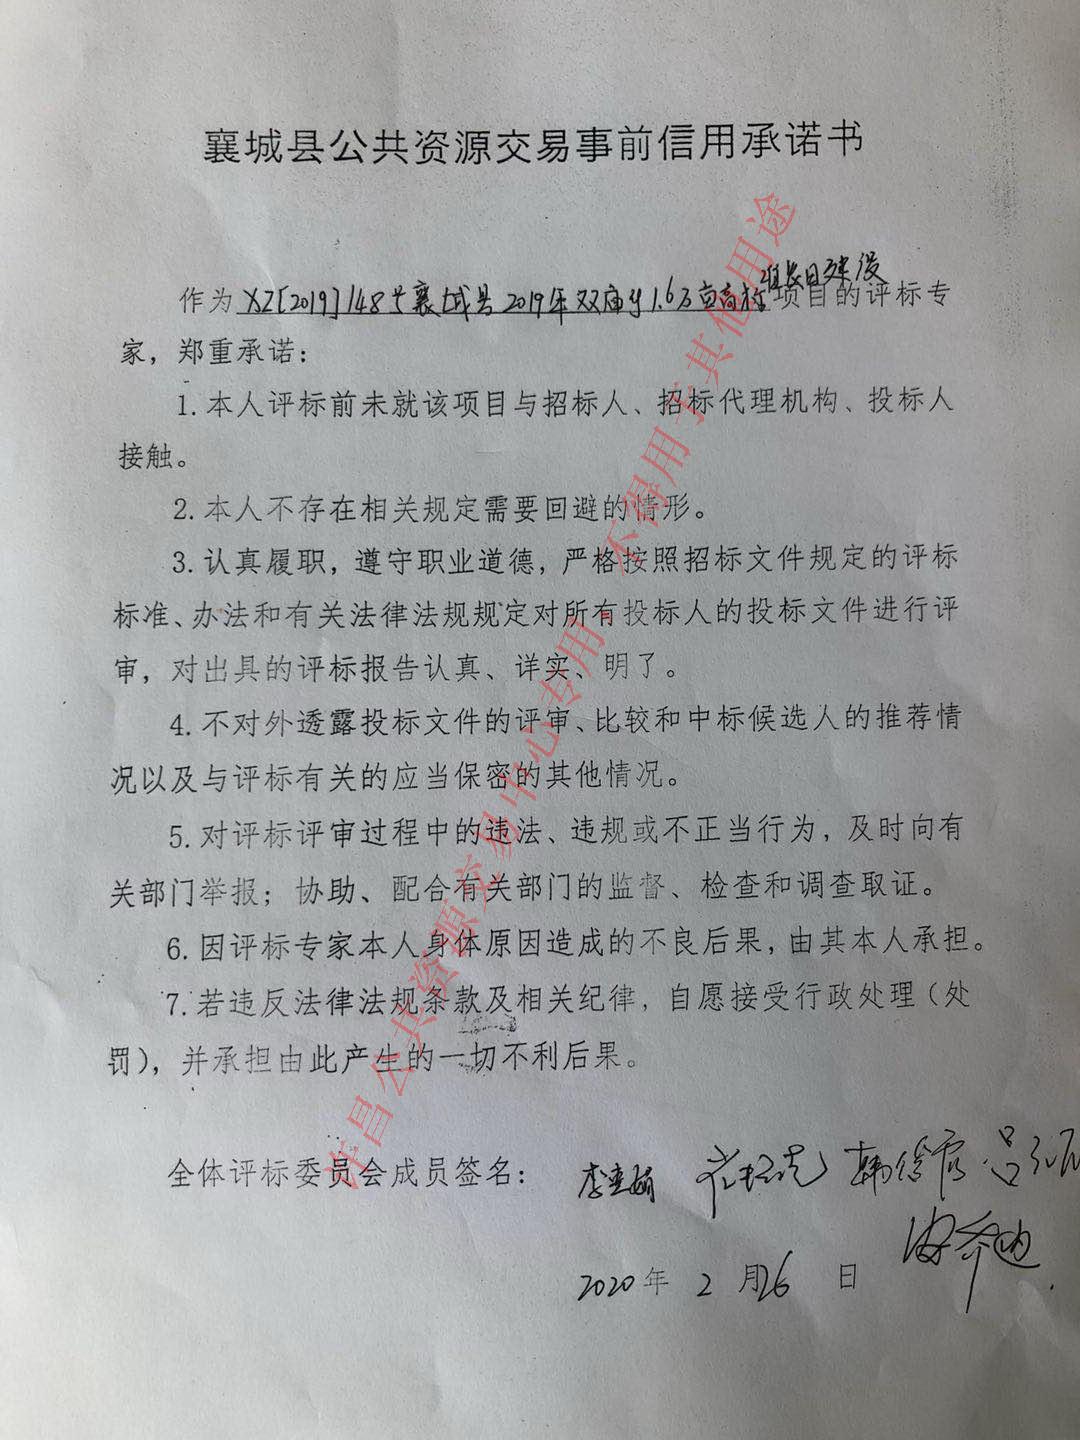 襄城县公共资源交易事前信用承诺书
作为XZ[2019]148号襄城县2019年双庙乡1.6万亩高标准农田建设项目的评标专
家，郑重承诺：
1.本人评标前未就该项目与招标人、招标代理机构、投标人
接触。
2.本人不存在相关规定需要回避的情形。
3.认真履职，遵守职业道德，严格按照招标文件规定的评标
标准、办法和有关法律法规规定对所有投标人的投标文件进行评
审，对出具的评标报告认真、详实、明了。
4.不对外透露投标文件的评审、比较和中标候选人的推荐情
况以及与评标有关的应当保密的其他情况。
5.对评标评审过程中的违法、违规或不正当行为，及时向有
关部门举报；协助、配合有关部门的监督、检查和调查取证。
6.因评标专家本人身体原因造成的不良后果，由其本人承担。
7.若违反法律法规条款及相关纪律，自愿接受行政处理（处
罚），并承担由此产生的一切不利后果。
全体评标委员会成员签名：
2020年2月26日
许昌公共资源交易中心专用，不得用于其他用途